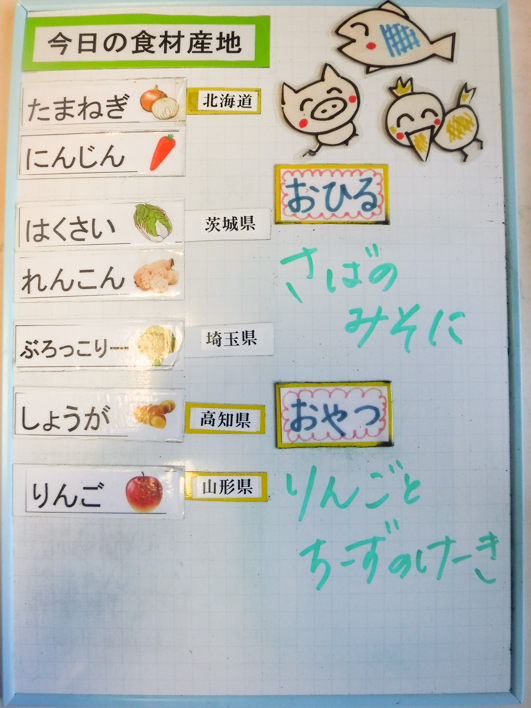 今日の食材産地
たまねぎ 北海道
にんじん
はくさい 茨城県
れんこん
ぶろっこりー 埼玉県
しょうが 高知県
りんご 山形県
おひる
さばの
みそに
おやつ
りんごと
ちーずのけーき